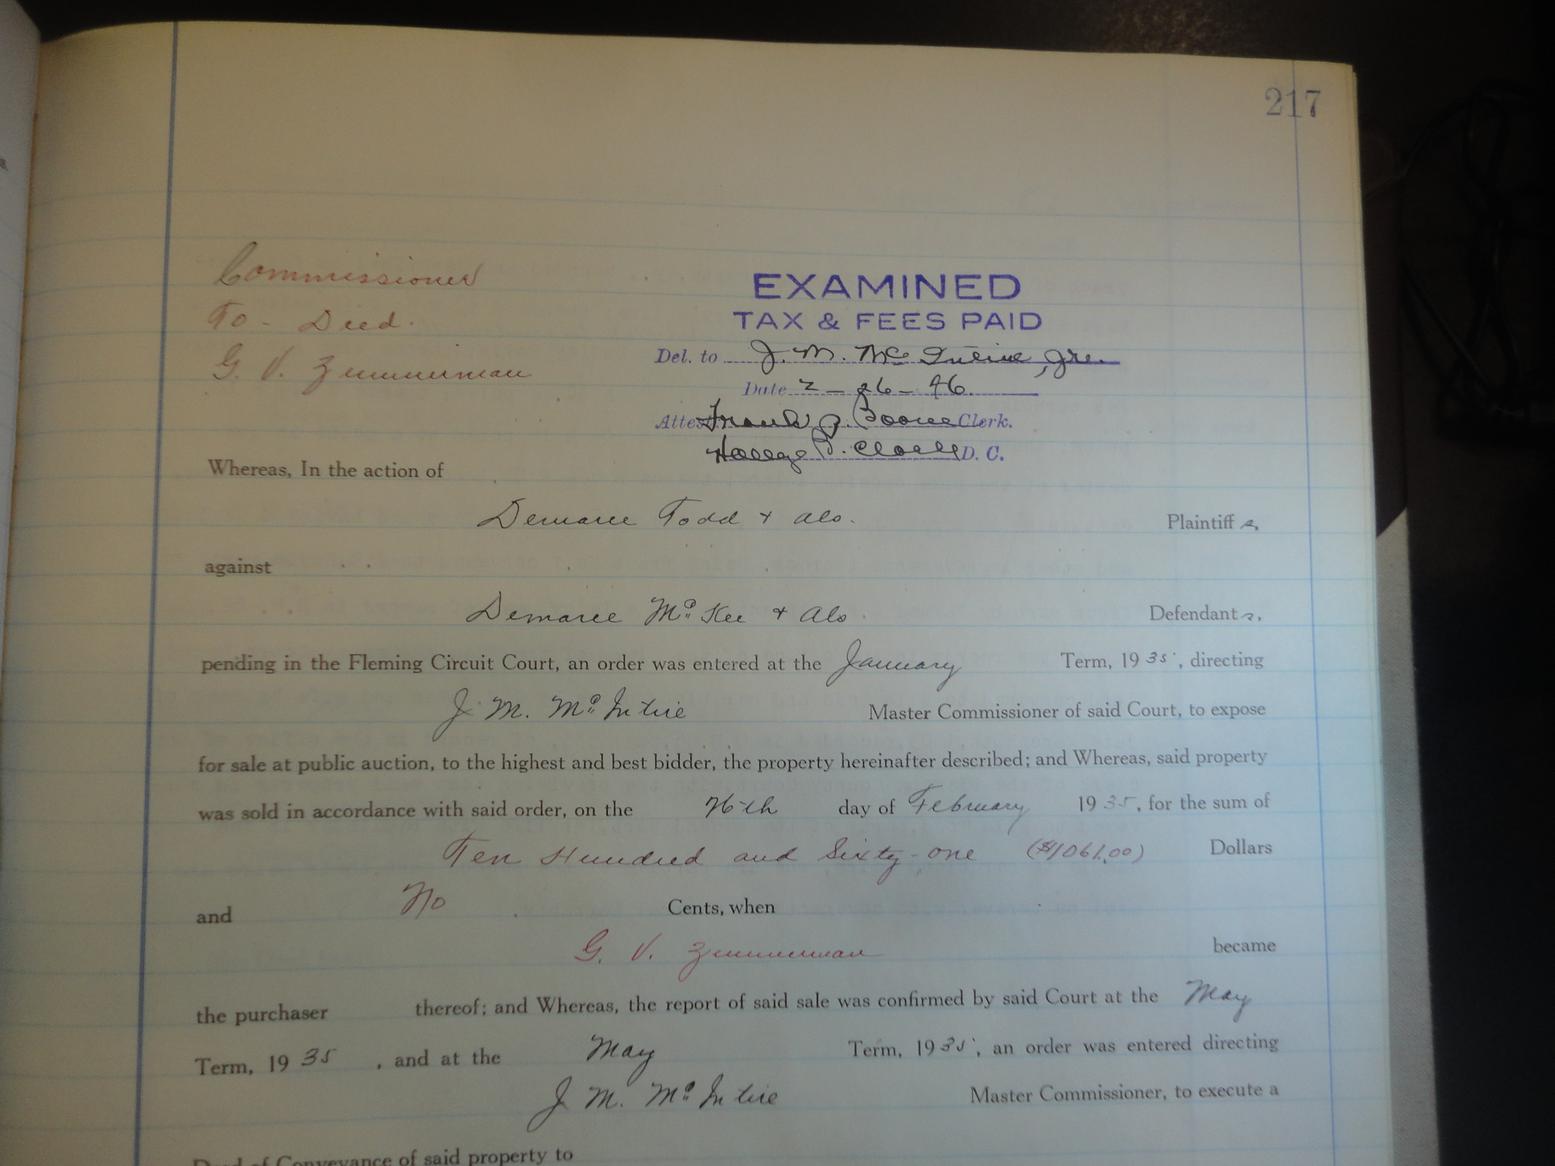 217
Commissioner
To - Deed.
G. V. Zimmerman
EXAMINED
TAX & FEES PAID
Del. to J. M. Mc Intire, Jr.
Date 2-26-46
Attest Frank J. Boone Clerk.
D. C.
Whereas, In the action of
Demaree Todd & als. Plaintiff s,
against
Demaree McKee & als. Defendant s,
pending in the Fleming Circuit Court, an order was entered at the January Term, 1935, directing
J. M. McIntire Master Commissioner of said Court, to expose
for sale at public auction, to the highest and best bidder, the property hereinafter described; and Whereas, said property
was sold in accordance with said order, on the day of February 1935, for the sum of
Ten Hundred and Sixty-one ($1061.00) Dollars
and No Cents, when
G. V. Zimmerman became
the purchaser thereof; and Whereas, the report of said sale was confirmed by said Court at the May
Term, 1935, and at the May Term, 1935, an order was entered directing
J. M. McIntire Master Commissioner, to execute a
Deed of Conveyance of said property to